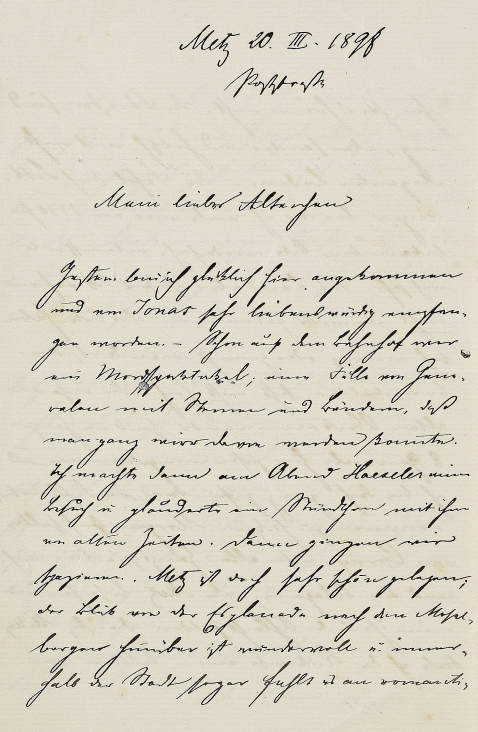 Metz 20. III. 1898
Poststraße
Mein liebes Alterchen
Gestern bin ich glücklich hier angekommen
und von Jonas sehr liebenswürdig empfan-
gen worden. – Schon auf dem Bahnhof war
ein Mordsspektakel; eine Fülle von Gene-
ralen mit Sternen und Bändern, daß
man ganz wirr davon werden konnte.
Ich machte dann am Abend Haeseler einen
Besuch u plauderte ein Stündchen mit ihm
von alten Zeiten. Dann gingen wir
spazieren. Metz ist doch sehr schön gelegen;
der Blick von der Esplanade nach den Mosel-
bergen hinüber ist wundervoll u. inner-
halb der Stadt sogar fehlt es an romanti-